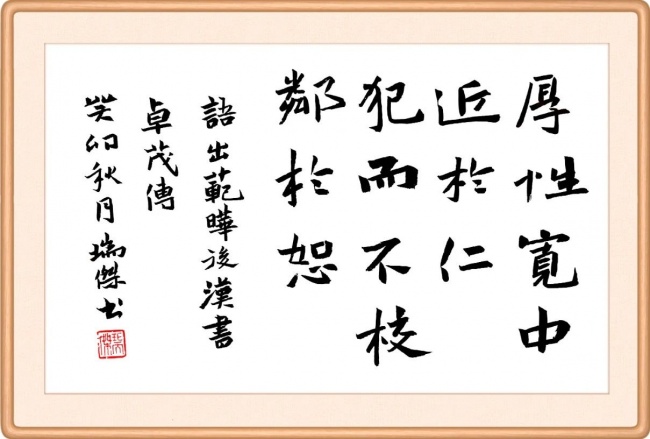 厚性寬中
近於仁
犯而不校
鄰於恕
語出範曄後漢書
卓茂傳
癸卯秋月瑞傑书
瑞傑